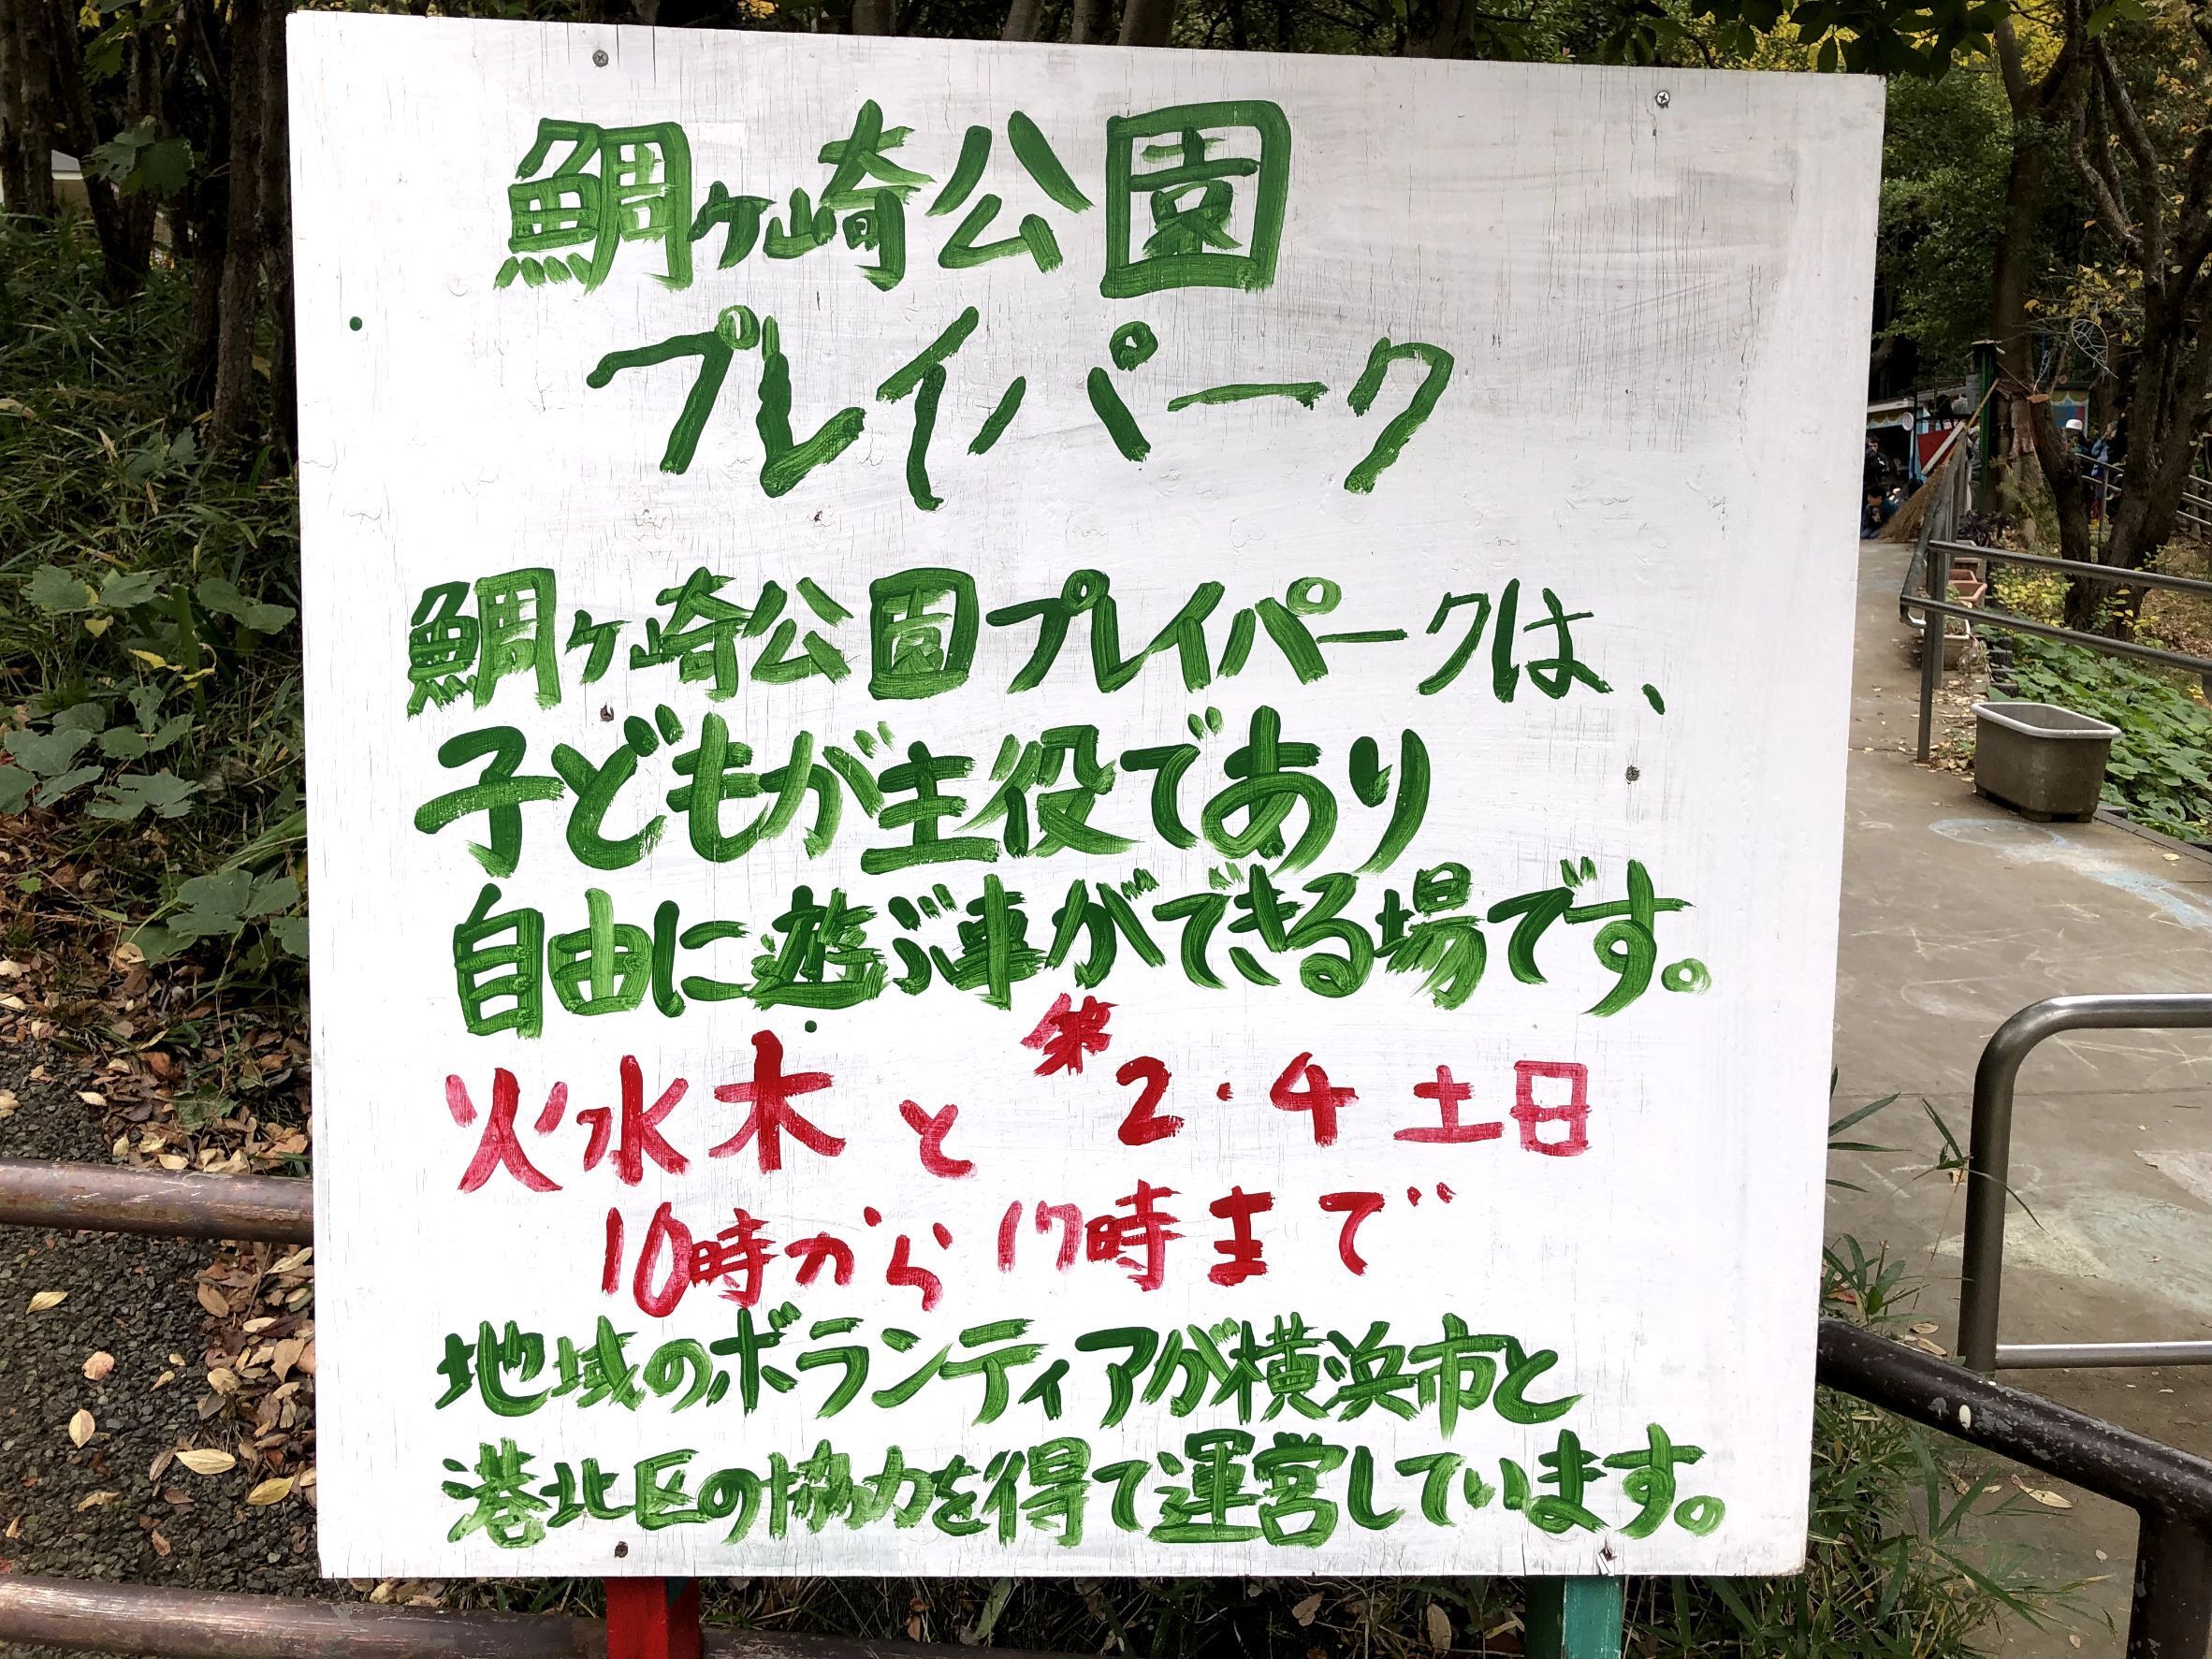 鯛ヶ崎公園
プレイパーク
鯛ヶ崎公園プレイパークは、
子どもが主役であり
自由に遊ぶ事ができる場です。
火水木と第2・4土日
10時から17時まで
地域のボランティアが横浜市と
港北区の協力を得て運営しています。